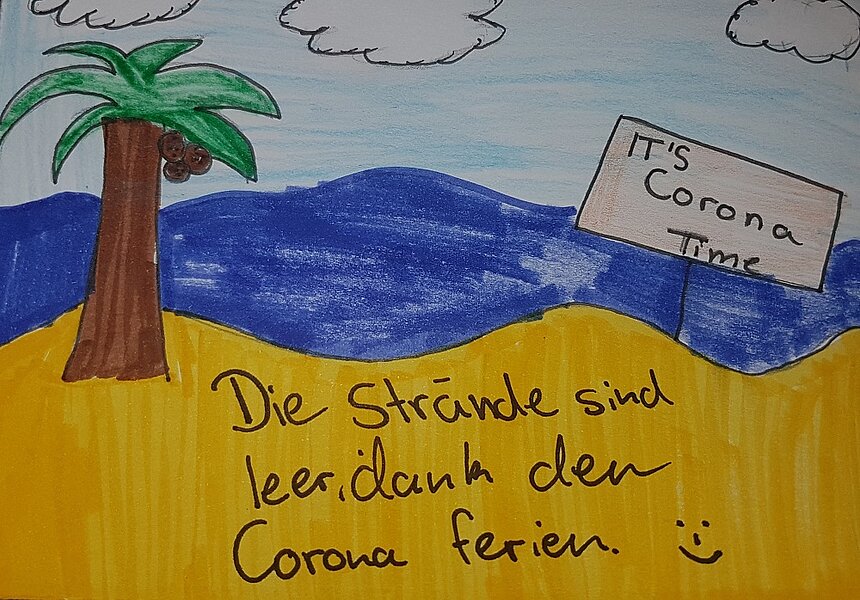 IT'S
Corona
Time
Die Strände sind
leer, dank den
Corona ferien. :)